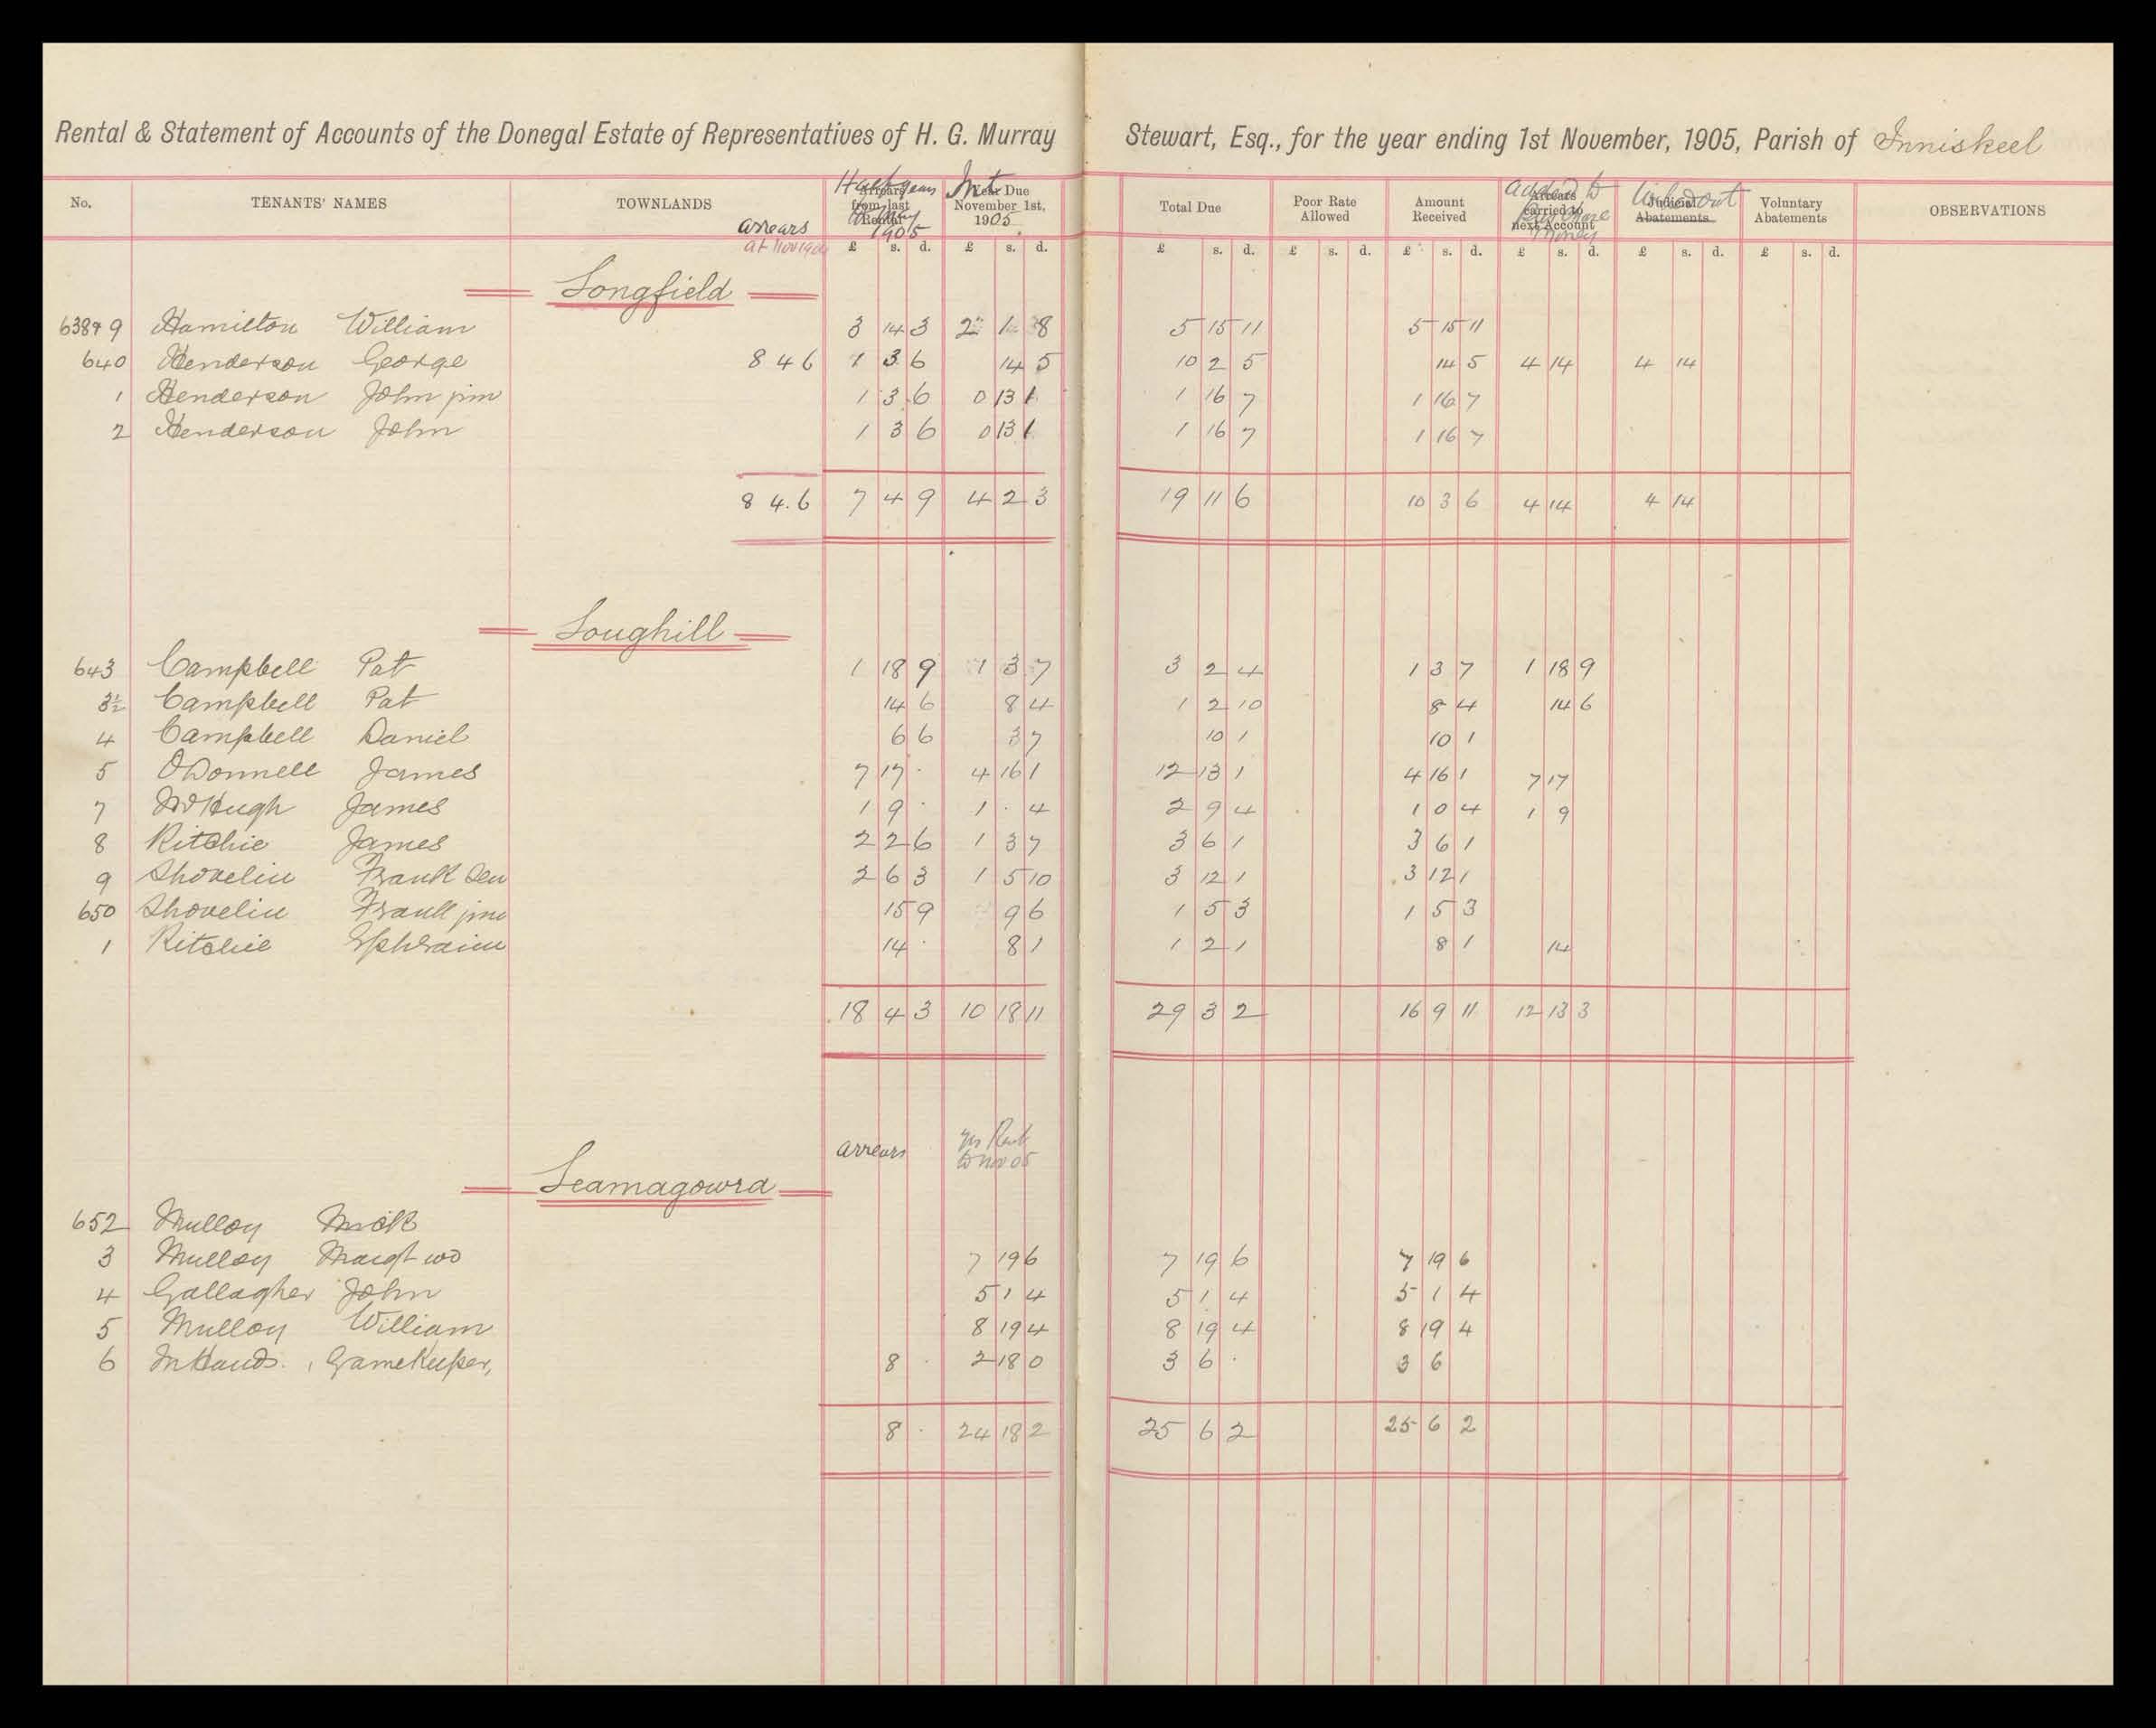 Rental & Statement of Accounts of the Donegal Estate of Representatives of H. G. Murray Stewart, Esq., for the year ending 1st November, 1905, Parish of Inniskeel
No. TENANTS' NAMES TOWNLANDS arrears at Nov 1904 Half years 1905 Arrears from last Rental Int Year Due November 1st, 1905 Total Due Poor Rate Allowed Amount Received added to Purchase Money Arrears carried to next Account Wiped out Judicial Abatements Voluntary Abatements OBSERVATIONS
£ s. d. £ s. d. £ s. d. £ s. d. £ s. d. £ s. d. £ s. d. £ s. d.
Longfield
63879 Hamilton William 3 14 3 2 1 8 5 15 11 5 15 11
640 Henderson George 8 4 6 1 3 6 14 5 10 2 5 14 5 4 14 4 14
1 Henderson John jun 1 3 6 0 13 1 1 16 7 1 16 7
2 Henderson John 1 3 6 0 13 1 1 16 7 1 16 7
8 4.6 7 4 9 4 2 3 19 11 6 10 3 6 4 14 4 14
Loughill
643 Campbell Pat 1 18 9 1 3 7 3 2 4 1 3 7 1 18 9
3½ Campbell Pat 14 6 8 4 1 2 10 8 4 14 6
4 Campbell Daniel 6 6 3 7 10 1 10 1
5 O'Donnell James 7 17 · 4 16 1 12 13 1 4 16 1 7 17
7 McHugh James 1 9 · 1 · 4 2 9 4 1 0 4 1 9
8 Ritchie James 2 2 6 1 3 7 3 6 1 3 6 1
9 Shovelin Frank Sen 2 6 3 1 5 10 3 12 1 3 12 1
650 Shovelin Frank jun 15 9 9 6 1 5 3 1 5 3
1 Ritchie Ephraim 14 · 8 1 1 2 1 8 1 14
18 4 3 10 18 11 29 3 2 16 9 11 12 13 3
arrears yrs Rent to Nov 05
Leamagowra
652 Mulloy Mick
3 Mulloy Margt wo 7 19 6 7 19 6 7 19 6
4 Gallagher John 5 1 4 5 1 4 5 1 4
5 Mulloy William 8 19 4 8 19 4 8 19 4
6 In Hands. , Gamekeeper, 8 · 2 18 0 3 6 · 3 6
8 · 24 18 2 25 6 2 25 6 2